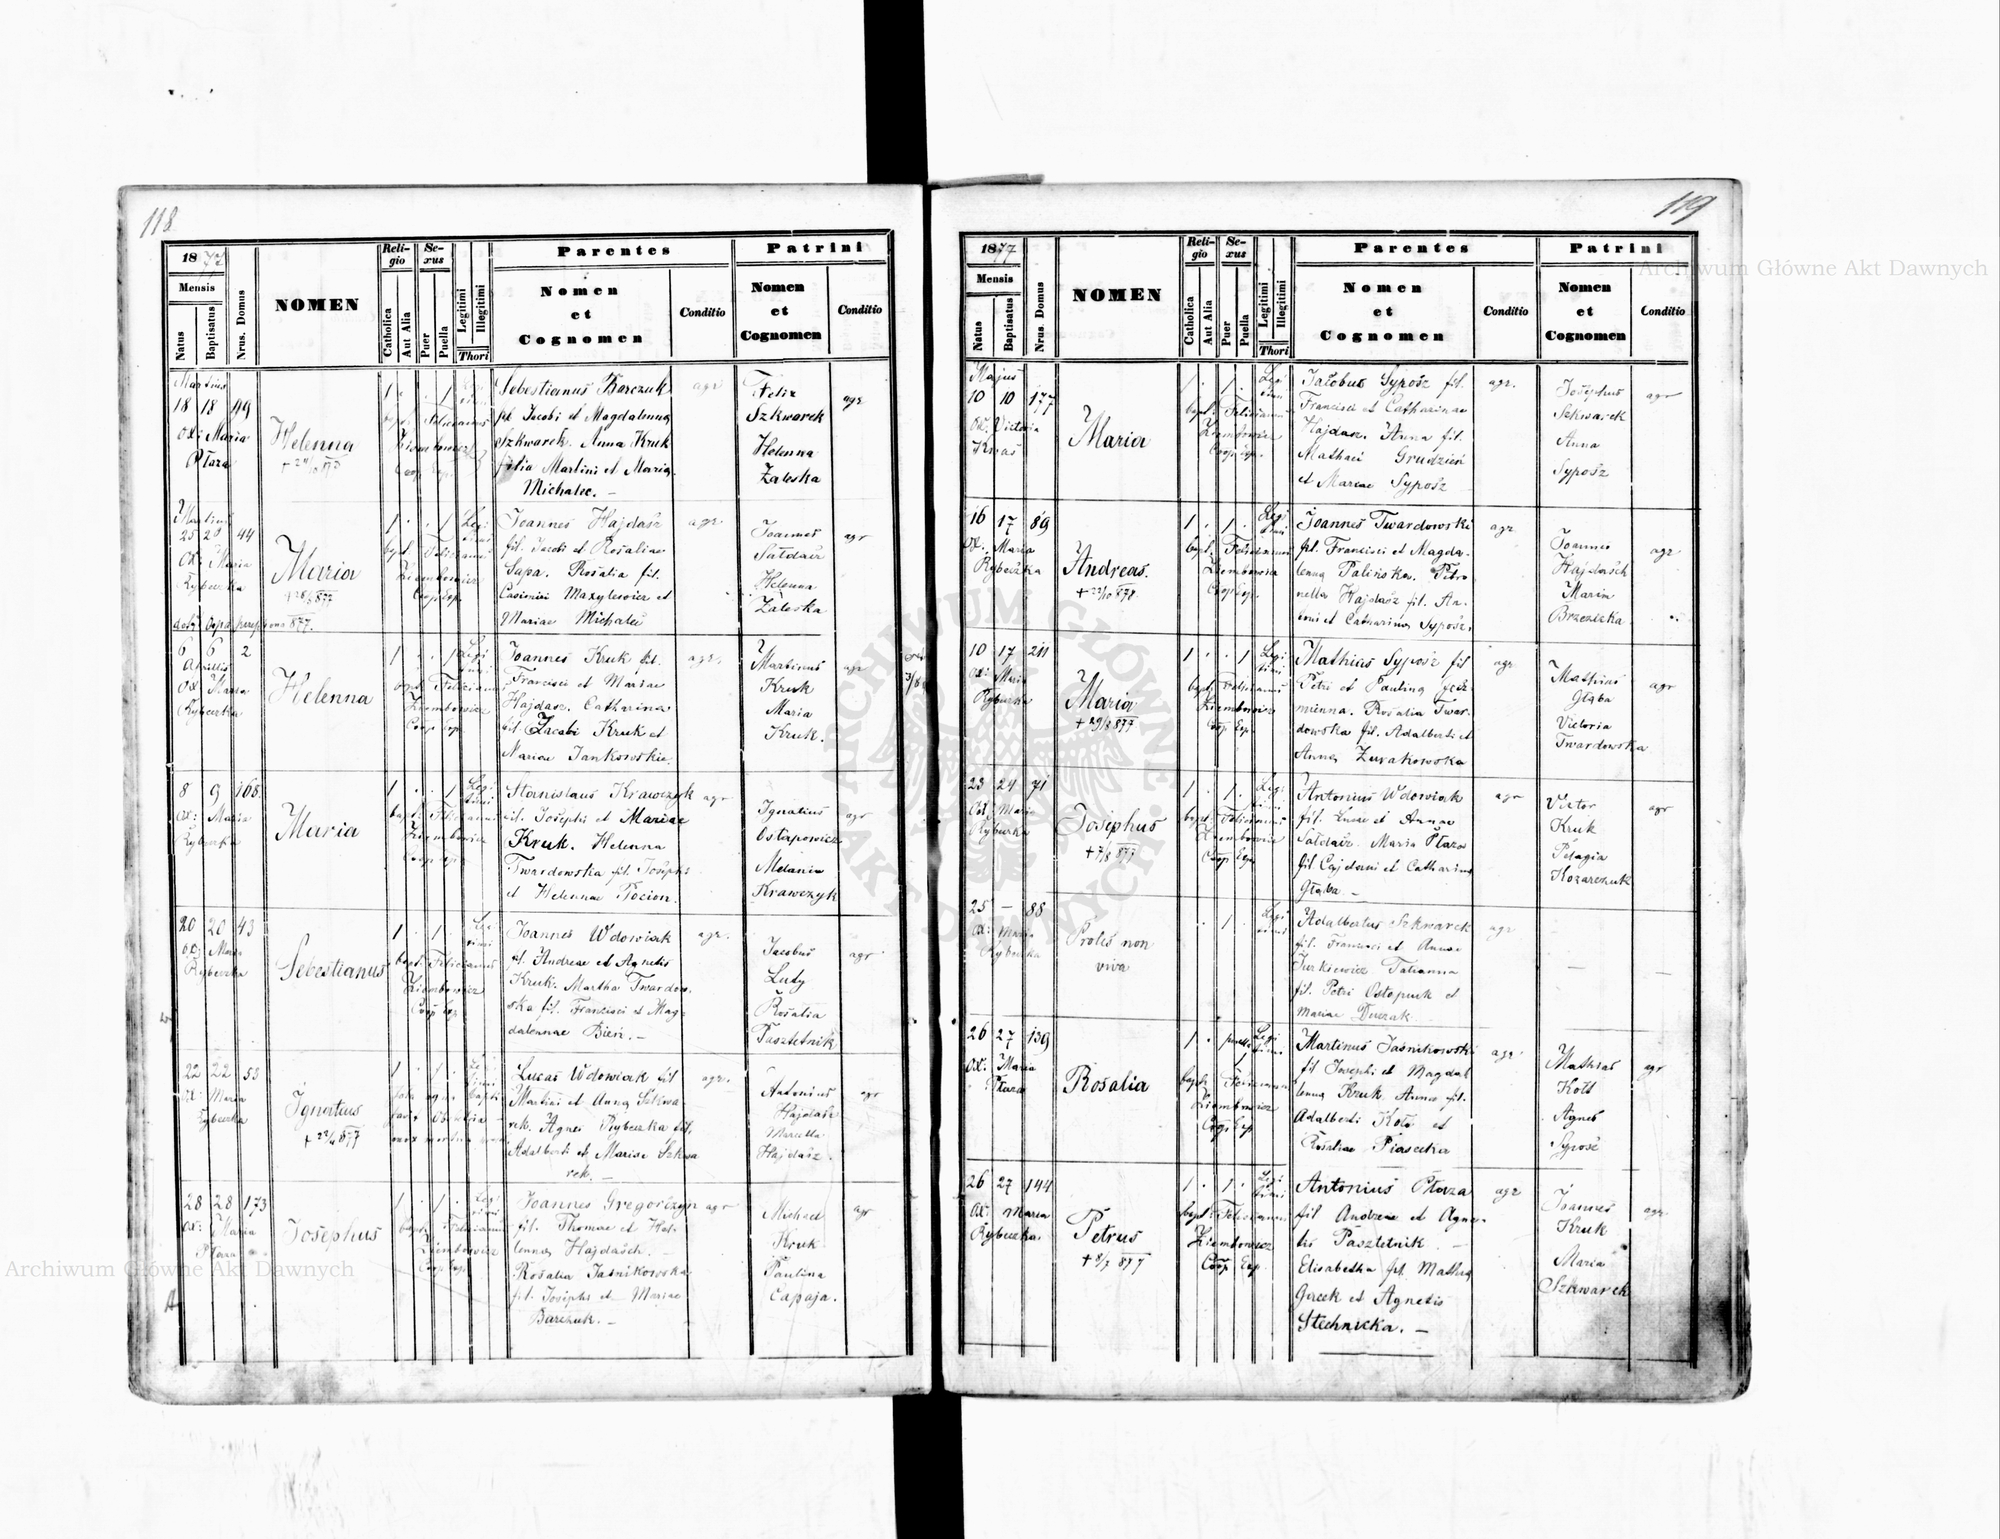 118
1877
Mensis
Natus
Baptisatus
Nrus. Domus
NOMEN
Reli-
gio
Catholica
Aut Alia
Se-
xus
Puer
Puella
Legitimi
Illegitimi
Thori
Parentes
Nomen
et
Cognomen
Conditio
Patrini
Nomen
et
Cognomen
Conditio
Martius
18 18 49
Maria
Ptaza
Helenna
1 . . 1
Sebestianus Barczuk
fil. Jacobi et Magdalenna
Szkwarek. Anna Kruk
filia Martini et Maria
Michalec. —
agr
Felix
Szkwarek
Helenna
Zaleska
agr
Martius
25 28 44
Ox: Maria
Rybeczka
Maria
1 . . 1 Legi
bapt. Felicianus
Ziembowicz
Coop Exp.
Joannes Hajdasz
fil. Jacobi et Rosaliae
Sapa. Rosalia fil.
Casimiri Mazylewicz et
Mariae Michalec
agr
Joannes
Sałdair
Helenna
Zaleska
agr
6 6 2
Aprilis
Ox: Maria
Rybeczka
Helenna
1 . . 1 Legi
bapt. Felicianus
Ziembowicz
Coop Exp.
Joannes Kruk fil.
Francisci et Mariae
Hajdasz. Catharina
fil. Jacobi Kruk et
Mariae Jankowskie.
agr.
Martinus
Kruk
Maria
Kruk.
agr
8 9 168
Ox: Maria
Rybeczka
Maria
1 . . 1 Legi
bapt. Felicianus
Ziembowicz
Coop Exp
Stanislaus Krawczyk
fil. Josephi et Mariae
Kruk. Helenna
Twardowska fil. Josephi
et Helennae Pocion.
agr
Ignatius
Ostapowicz
Melania
Krawczyk
agr
20 20 43
Ox: Maria
Rybeczka
Sebestianus
1 . 1 .
bapt. Felicianus
Ziembowicz
Coop Exp
Joannes Wdowiak
fil. Andreae et Agnetis
Kruk. Martha Twardow
ska fil. Francisci et Mag-
dalennae Bień. —
agr.
Jacobus
Luty
Rosalia
Pasztetnik
agr
22 22 58
Ox: Maria
Rybeczka
Ignatius
1 . 1 .
Lucas Wdowiak fil
Martini et Anna Szkwa
rek. Agnes Rybeczka fil.
Adalberti et Mariae Szkwa
rek. —
agr.
Antonius
Hajdasz
Marcella
Hajdasz.
agr
28 28 173
Ox: Maria
Ptaza
Josephus
1 . 1 . Legi
bapt. Felicianus
Ziembowicz
Coop Exp
Joannes Gregorczyn
fil. Thomae et Hel-
lenna Hajdasch. —
Rosalia Jasnikowska
fil. Josephi et Mariae
Barczuk. —
agr
Michael
Kruk
Paulina
Capaja.
agr
119
1877
Mensis
Natus
Baptisatus
Nrus. Domus
NOMEN
Reli-
gio
Catholica
Aut Alia
Se-
xus
Puer
Puella
Legitimi
Illegitimi
Thori
Parentes
Nomen
et
Cognomen
Conditio
Patrini
Nomen
et
Cognomen
Conditio
Majus
10 10 177
Ox. Victoria
Maria
1 . 1 . Legi
bapt. Felicianus
Ziembowicz
Coop Exp.
Jacobus Syposz fil.
Francisci et Catharinae
Hajdasz. Anna fil.
Mathaei Grudzień
et Mariae Syposz
agr.
Josephus
Szkwarek
Anna
Syposz
agr
16 17 89
Ox. Maria
Rybeczka
Andreas.
1 . 1 . Legi
bapt. Felicianus
Ziembowicz
Coop Exp.
Joannes Twardowski
fil. Francisci et Magda-
lenna Palińska. Petro
nella Hajdasz fil. An-
toni et Catharina Syposz.
agr
Joannes
Hajdasch
Maria
Brzezezka
agr
10 17 211
Ox: Maria
Rybeczka
Maria
1 . . 1 Legi
bapt. Felicianus
Ziembowicz
Coop Exp.
Mathias Syposz fil
Petri et Paulina
Rosalia Twar-
dowska fil. Adalberti et
Anna Zurakowska
agr
Mathias
Głąba
Victoria
Twardowska
agr
23 24 71
Ox. Maria
Rybeczka
Josephus
1 . 1 . Legi
bapt. Felicianus
Ziembowicz
Coop Exp.
Antonius Wdowiak
fil. Lucae et Annae
Sałdair. Maria Ptaza
fil Cajetani et Catharina
Głąba —
agr
Victor
Kruk
Pelagia
Kozarczuk
agr
25 — 88
Ox: Maria
Rybeczka
Proles non
viva
. 1 . Legi
Adalbertus Szkwarek
fil. Francisci et Annae
Jurkiewicz Tatianna
fil. Petri Ostapiuk et
Mariae Derczak
agr
—
—
26 27 139
Ox: Maria
Ptaza
Rosalia
1 . puella Legi
bapt. Felicianus
Ziembowicz
Coop Exp
Martinus Jasnikowski
fil Josephi et Magdal
lenna Kruk. Anna fil.
Adalberti Kott et
Rosaliae Piasecka
agr
Mathias
Kott
Agnes
Syposz
agr
26 27 144
Ox: Maria
Rybeczka.
Petrus
+ 8/7 877
1 . 1 . Legi
bapt. Felicianus
Ziembowicz
Coop Exp
Antonius Ptaza
fil Andreae et Agne-
tis Pasztetnik. —
Elisabetha fil. Mathia
Gerek et Agnetis
Stechnicka. —
agr
Joannes
Kruk
Maria
Szkwarek
agr.
Archiwum Główne Akt Dawnych
Archiwum Główne Akt Dawnych
ARCHIWUM GŁÓWNE
AKT DAWNYCH